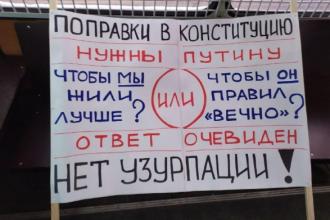 ПОПРАВКИ В КОНСТИТУЦИЮ
НУЖНЫ ПУТИНУ
ЧТОБЫ МЫ
ЖИЛИ
ЛУЧШЕ?
ИЛИ
ЧТОБЫ ОН
ПРАВИЛ
«ВЕЧНО»?
ОТВЕТ ОЧЕВИДЕН
НЕТ УЗУРПАЦИИ!